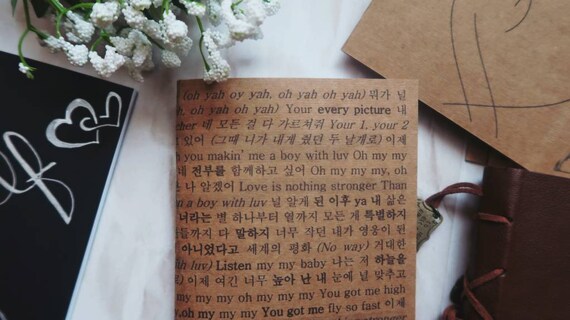 (oh yah oy yah, oh yah oh yah) 뭐가 널
h, oh yah oh yah) Your every picture 내
ther 네 모든 걸 다 가르쳐줘 Your 1, your 2
있어 (그때 니가 내게 줬던 두 날개로) 이제
h you makin' me a boy with luv Oh my my
네 전부를 함께하고 싶어 Oh my my my, oh
나 알겠어 Love is nothing stronger Than
n a boy with luv 널 알게 된 이후 ya 내 삶은
너라는 별 하나부터 열까지 모든 게 특별하지
들까지 다 말하지 너무 작던 내가 영웅이 된
아니었다고 세계의 평화 (No way) 거대한
th luv) Listen my my baby 나는 저 하늘을
) 이제 여긴 너무 높아 난 내 눈에 널 맞추고
my my my my oh my my my You got me high
,oh my my my You got me fly so fast 이제
stronger